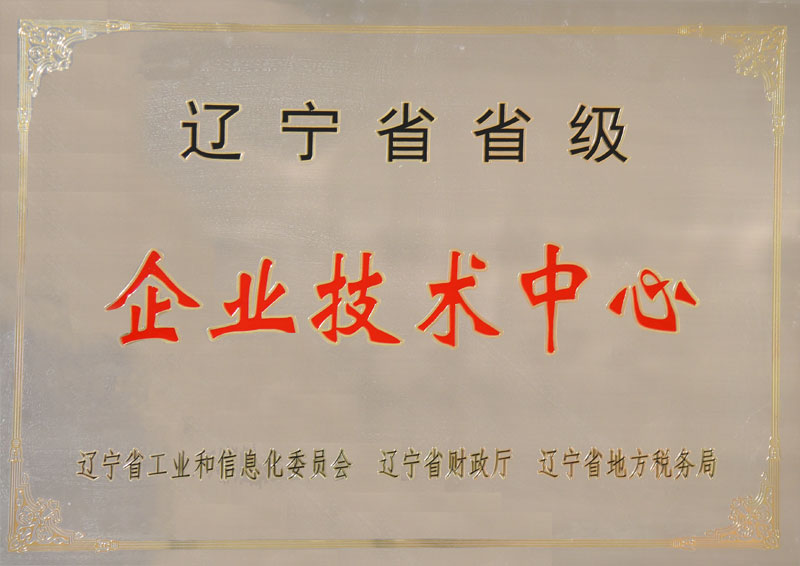 辽宁省省级
企业技术中心
辽宁省工业和信息化委员会 辽宁省财政厅 辽宁省地方税务局